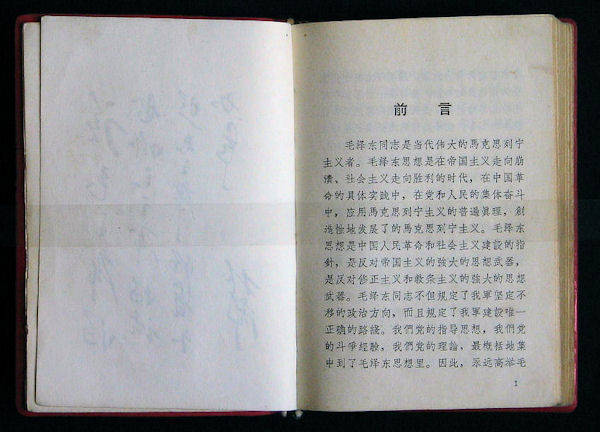 前言
毛泽东同志是当代伟大的馬克思列宁
主义者。毛泽东思想是在帝国主义走向崩
潰、社会主义走向胜利的时代，在中国革
命的具体实践中，在党和人民的集体奋斗
中，应用馬克思列宁主义的普遍眞理，創
造性地发展了的馬克思列宁主义。毛泽东
思想是中国人民革命和社会主义建設的指
針，是反对帝国主义的強大的思想武器，
是反对修正主义和教条主义的強大的思想
武器。毛泽东同志不但規定了我軍坚定不
移的政治方向，而且規定了我軍建設唯一
正确的路綫。我們党的指导思想，我們党
的斗爭經驗，我們党的理論，最概括地集
中到了毛泽东思想里。因此，永远高举毛
1